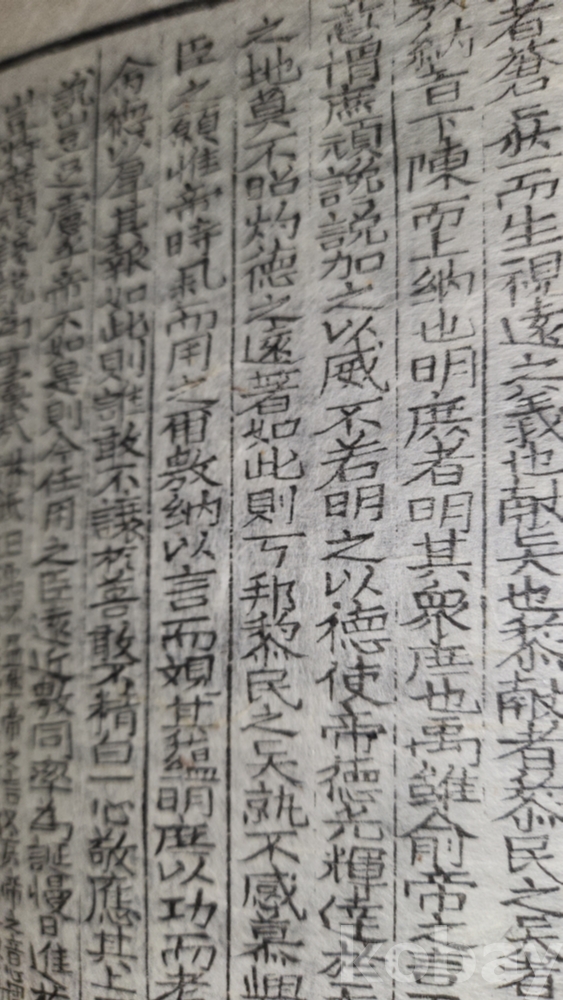 者蒼然而生視遠之義也献賢也黎献者黎民之賢者
敷納者下陳而上納也明庶者明其衆庶也禹雖俞帝之言
意謂庶頑讒說加之以威不若明之以德使帝德光輝達於
之地莫不昭灼德之遠著如此則万邦黎民之賢孰不感慕興
臣之願惟帝時擧而用之爾敷納以言而觀其蘊明庶以功而考
命德以厚其報如此則誰敢不讓於善敢不精白一心敬應其上
說豈足慮乎帝不如是則今任用之臣遠近敷同率為誕慢日進於
帝之言
kobay